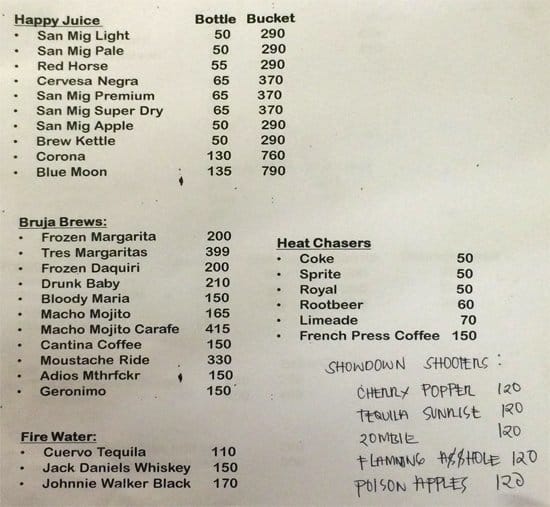 Happy Juice Bottle Bucket
• San Mig Light 50 290
• San Mig Pale 50 290
• Red Horse 55 290
• Cervesa Negra 65 370
• San Mig Premium 65 370
• San Mig Super Dry 65 370
• San Mig Apple 50 290
• Brew Kettle 50 290
• Corona 130 760
• Blue Moon 135 790
Bruja Brews:
• Frozen Margarita 200
• Tres Margaritas 399
• Frozen Daquiri 200
• Drunk Baby 210
• Bloody Maria 150
• Macho Mojito 165
• Macho Mojito Carafe 415
• Cantina Coffee 150
• Moustache Ride 330
• Adios Mthrfckr 150
• Geronimo 150
Fire Water:
• Cuervo Tequila 110
• Jack Daniels Whiskey 150
• Johnnie Walker Black 170
Heat Chasers
• Coke 50
• Sprite 50
• Royal 50
• Rootbeer 60
• Limeade 70
• French Press Coffee 150
SHOWDOWN SHOOTERS :
CHERRY POPPER 120
TEQUILA SUNRISE 120
ZOMBIE 120
FLAMMING A$$HOLE 120
POISON APPLES 120